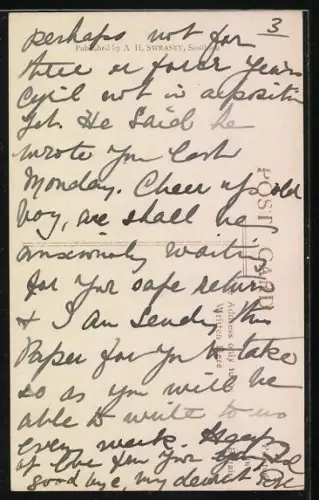 3
perhaps not for
Published by A. H. SWEASEY, South
three or four years
Cyril not in a position
yet. He said he
wrote you last
Monday. Cheer up old
boy, we shall be
anxiously waiting
for your safe return
& I am sending this
Paper for you to take
so as you will be
able to write to us
every week. Heaps
of love from your
good bye, my dearest
POST CARD
Address only to be
Written here